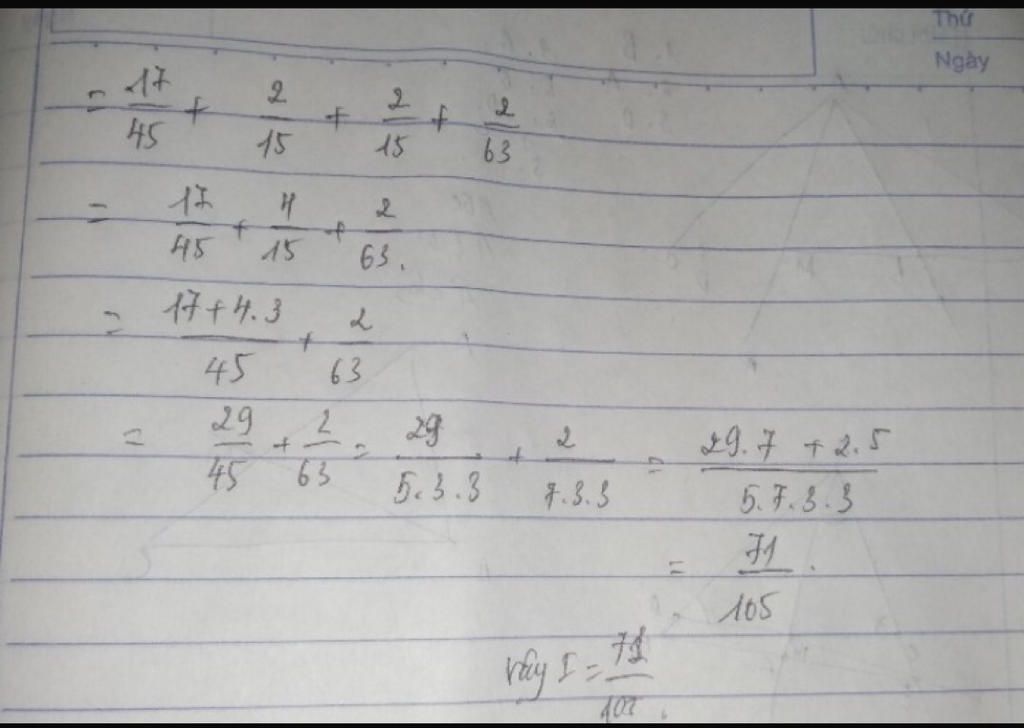 Thứ
Ngày
= 17/45 + 2/15 + 2/15 + 2/63
= 17/45 + 4/15 + 2/63.
= (17+4.3)/45 + 2/63
= 29/45 + 2/63 = 29/(5.3.3) + 2/(7.3.3) = (29.7 + 2.5)/(5.7.3.3)
= 71/105.
Vậy I = 71/105.